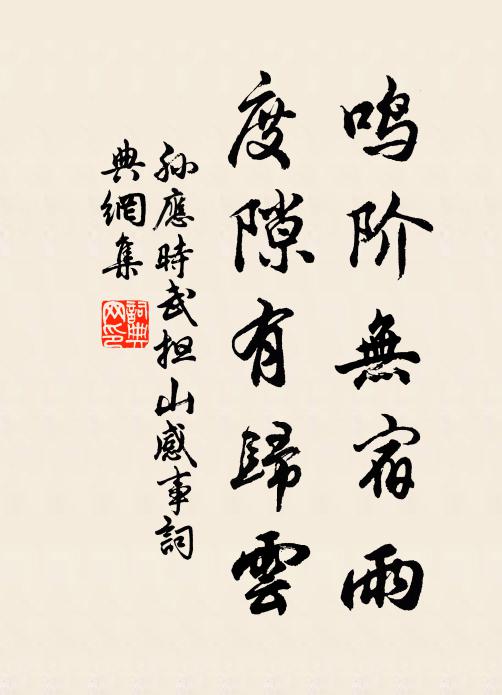 鸣阶無宿雨
度隙有歸雲
孫應時武担山感事詞
典網集
詞典网印